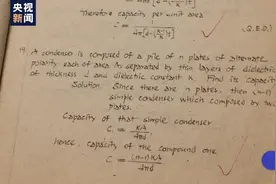 央视新闻
Therefore capacity per unit area
(Q.E.D.)
19. A condenser is composed of a pile of n plates of alternate
polarity each of area A, separated by thin layers of dielectric
of thickness d and dielectric constant K. Find its capacity
Solution. Since there are n plates, then (n-1)
simple condenser which composed by two
plates.
Capacity of that simple condenser
C₁ = KA/4πd
hence, capacity of the compound one
C = (n-1)KA/4πd